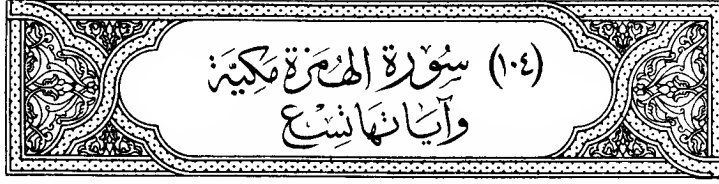 (١٠٤) سُورَة الهُمَزة مَكِيَّة
وآيَاتهَا تِسْع